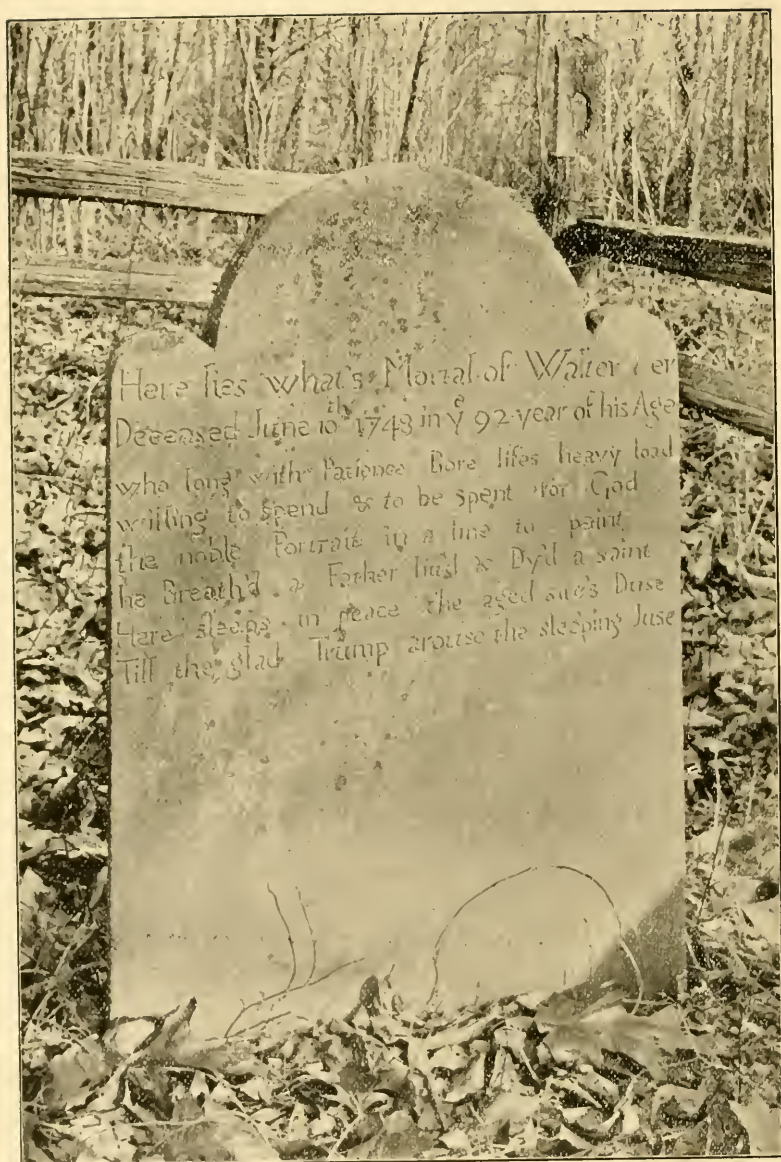 Here lies what's Mortal of Walter
Deceased June 10th 1748 in ye 92 year of his Age
who long with Patience Bore lifes heavy load
willing to spend & to be spent for God
the noble Portrait in a line to paint
he Breath'd a Father liv'd & Dy'd a saint
Here sleeps in peace the aged sire's Dust
Till the glad Trump arouse the sleeping Just